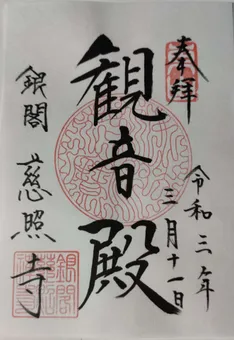 奉拝
令和三年
三月十一日
観音殿
銀閣 慈照寺